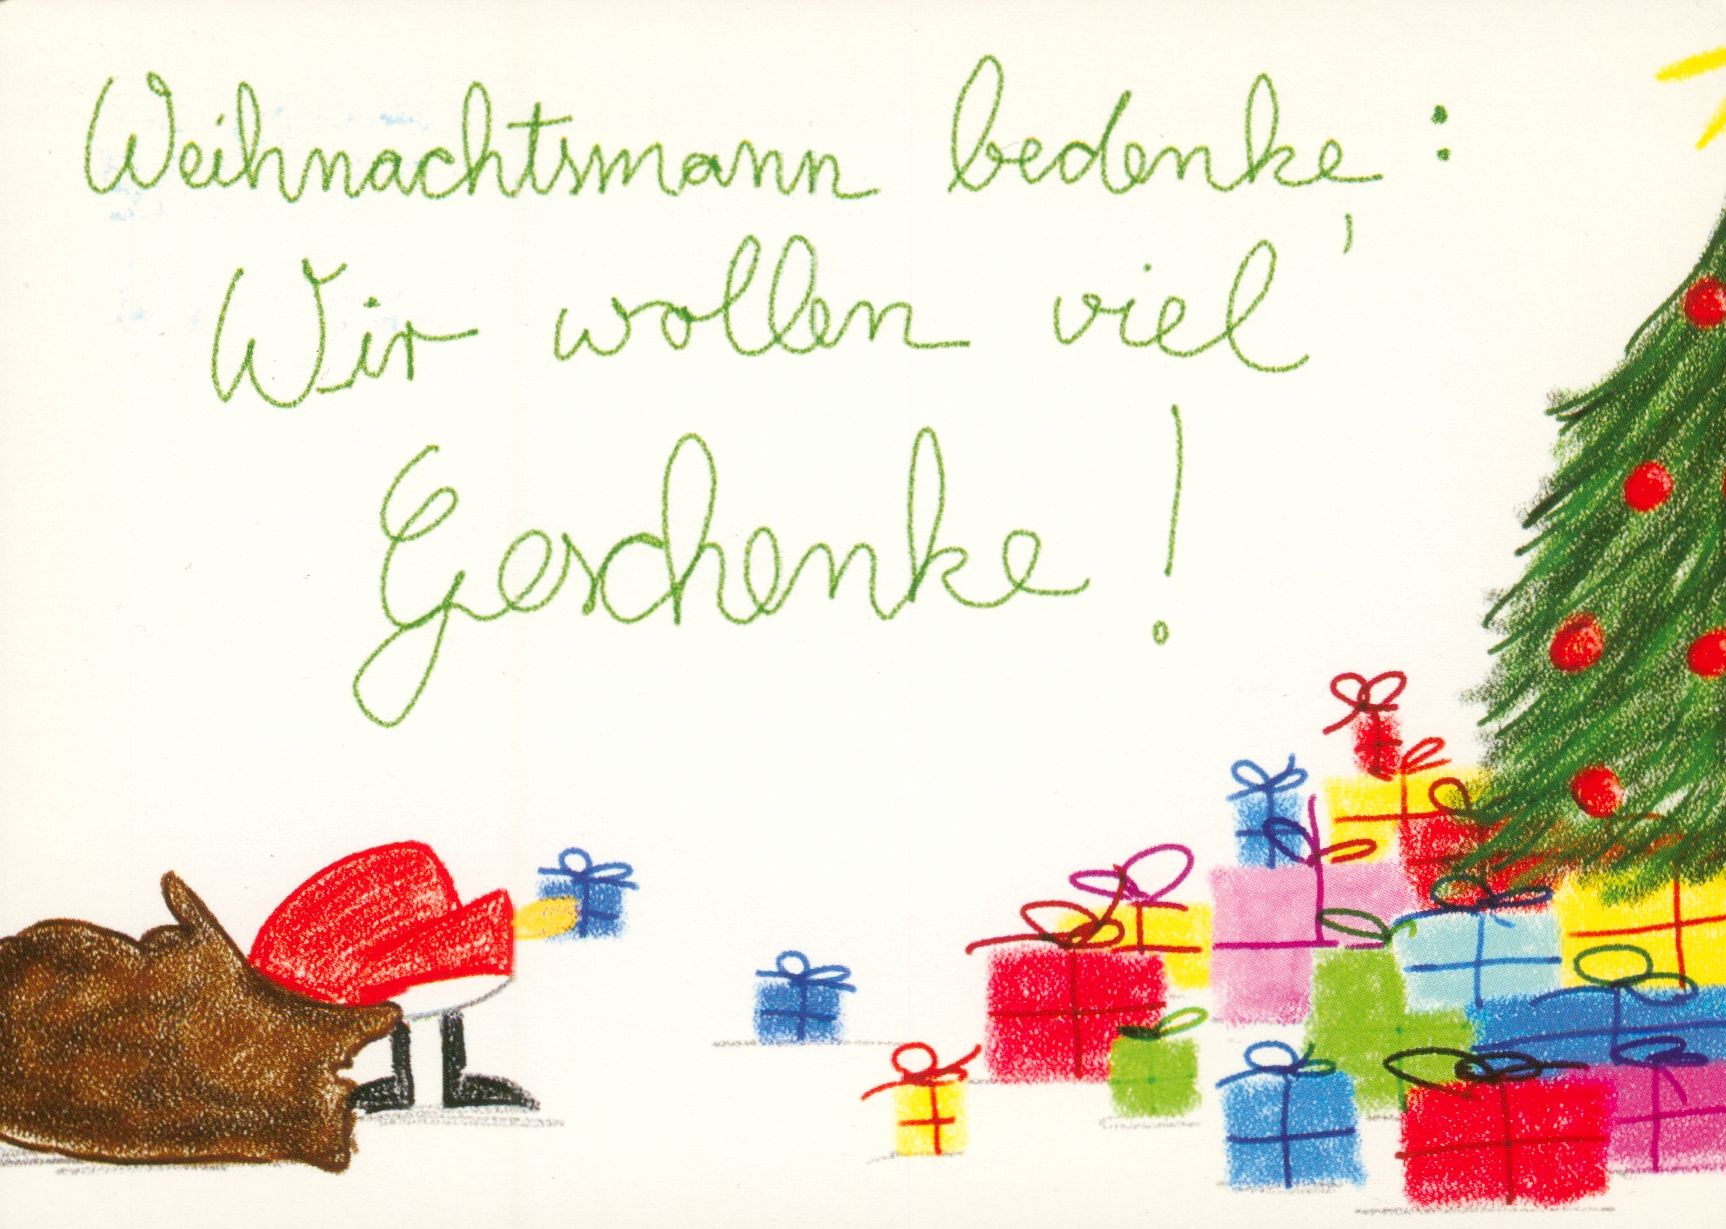 Weihnachtsmann bedenke:
Wir wollen viel'
Geschenke!